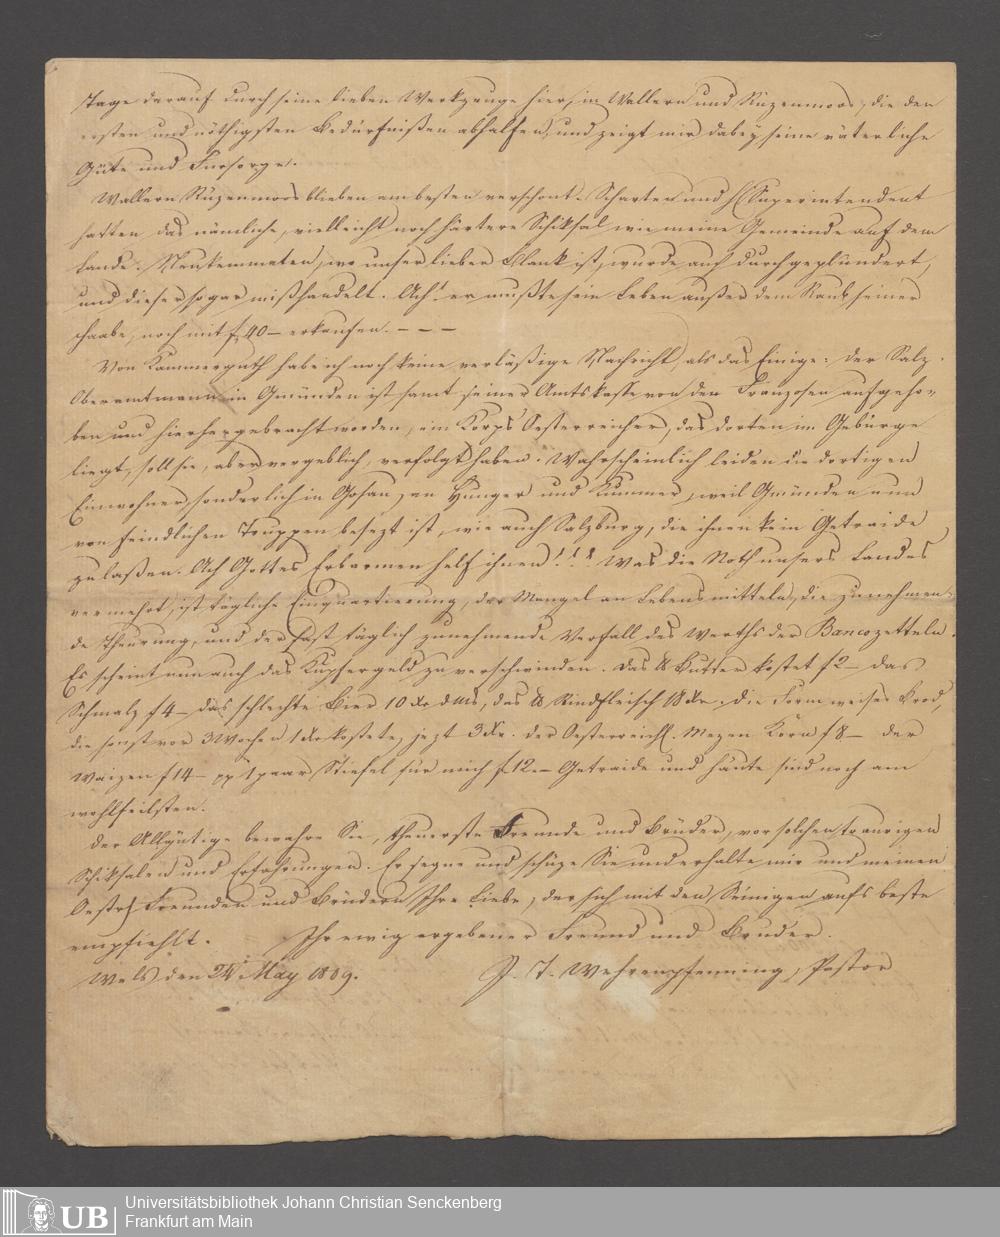 Tage darauf durch seine lieben Werkzeuge hier, in Wallern und Rüzenmoos, die den
ersten und nöthigsten Bedürfnißen abhalfen, und zeigt mir dabey seine väterliche
Güte und Fürsorge.
Wallern Rüzenmoos blieben am besten verschont. Scharten und H Superintendent
hatten das nämliche, vielleicht noch härtere Schiksal, wie meine Gemeinde auf dem
Lande. Neukemmaten, wo unser lieber Blank ist, wurde auch durchgeplündert,
und dieser sogar mißhandelt. Ach! er mußte sein Leben außer dem Raub seiner
Haabe, noch mit f 40 – erkaufen. – – –
Von Kammerguth hab ich noch keine verläßige Nachricht, als das Einige: der Salz-
Oberamtmann in Gmünden ist samt seiner Amtskasse von den Franzosen aufgeho-
ben und hierher gebracht worden, ein Korps Oesterreicher, das dorten im Gebürge
liegt, soll sie, aber vergeblich, verfolgt haben. Wahrscheinlich leiden die dortigen
Einwohner, sonderlich in Gosau, an Hunger und Kummer, weil Gmünden nun
von feindlichen Truppen besezt ist, wie auch Salzburg, die ihnen kein Getraide
zulaßen. Ach Gottes Erbarmen helf ihnen!!! Was die Noth unsers Landes
vermehrt, ist tägliche Einquartierung, der Mangel an Lebensmitteln, die zunehmen-
de Theurung, und der fast täglich zunehmende Verfall des Werths der Bancozetteln.
Es scheint nun auch das Kupfergeld zu verschwinden. Das ℔ Butter kostet f 2 – das
Schmalz f 4 – das schlechte Bier 10 Xr, das ℔ Rindfleisch 18 Xr. die Form weißes Brod,
die sonst vor 3 Wochen 1 Xr kostete, jezt 3 Xr. der Oesterreichl. Mezen Korn f 8 – der
Waizen f 14 – pp 1 paar Stiefel für mich f 12. – Getraide und Häute sind noch am
wohlfeilsten.
Der Allgütige bewahre Sie, theuerste Freunde und Brüder, vor solchen traurigen
Schiksalen und Erfahrungen. Er segne und schüze Sie und erhalte mir und meinen
Oestr. Freunden und Brüdern Ihre Liebe, der sich mit den Seinigen aufs beste
empfiehlt. Ihr ewig ergebener Freund und Bruder.
Wels den 24 May 1809. J. T. Wehrenpfenning, Pastor
UB
Universitätsbibliothek Johann Christian Senckenberg
Frankfurt am Main